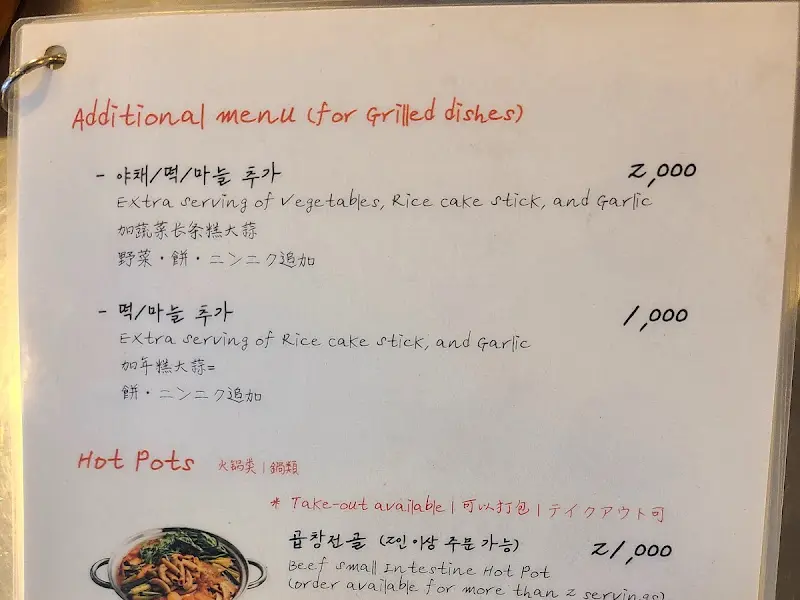 Additional menu (for Grilled dishes)
- 야채/떡/마늘 추가 2,000
Extra serving of Vegetables, Rice cake stick, and Garlic
加蔬菜长条糕大蒜
野菜・餅・ニンニク追加
- 떡/마늘 추가 1,000
Extra serving of Rice cake stick, and Garlic
加年糕大蒜=
餅・ニンニク追加
Hot Pots 火锅类 | 鍋類
* Take-out available | 可以打包 | テイクアウト可
곱창전골 (2인 이상 주문 가능) 21,000
Beef small Intestine Hot Pot
(order available for more than 2 servings)